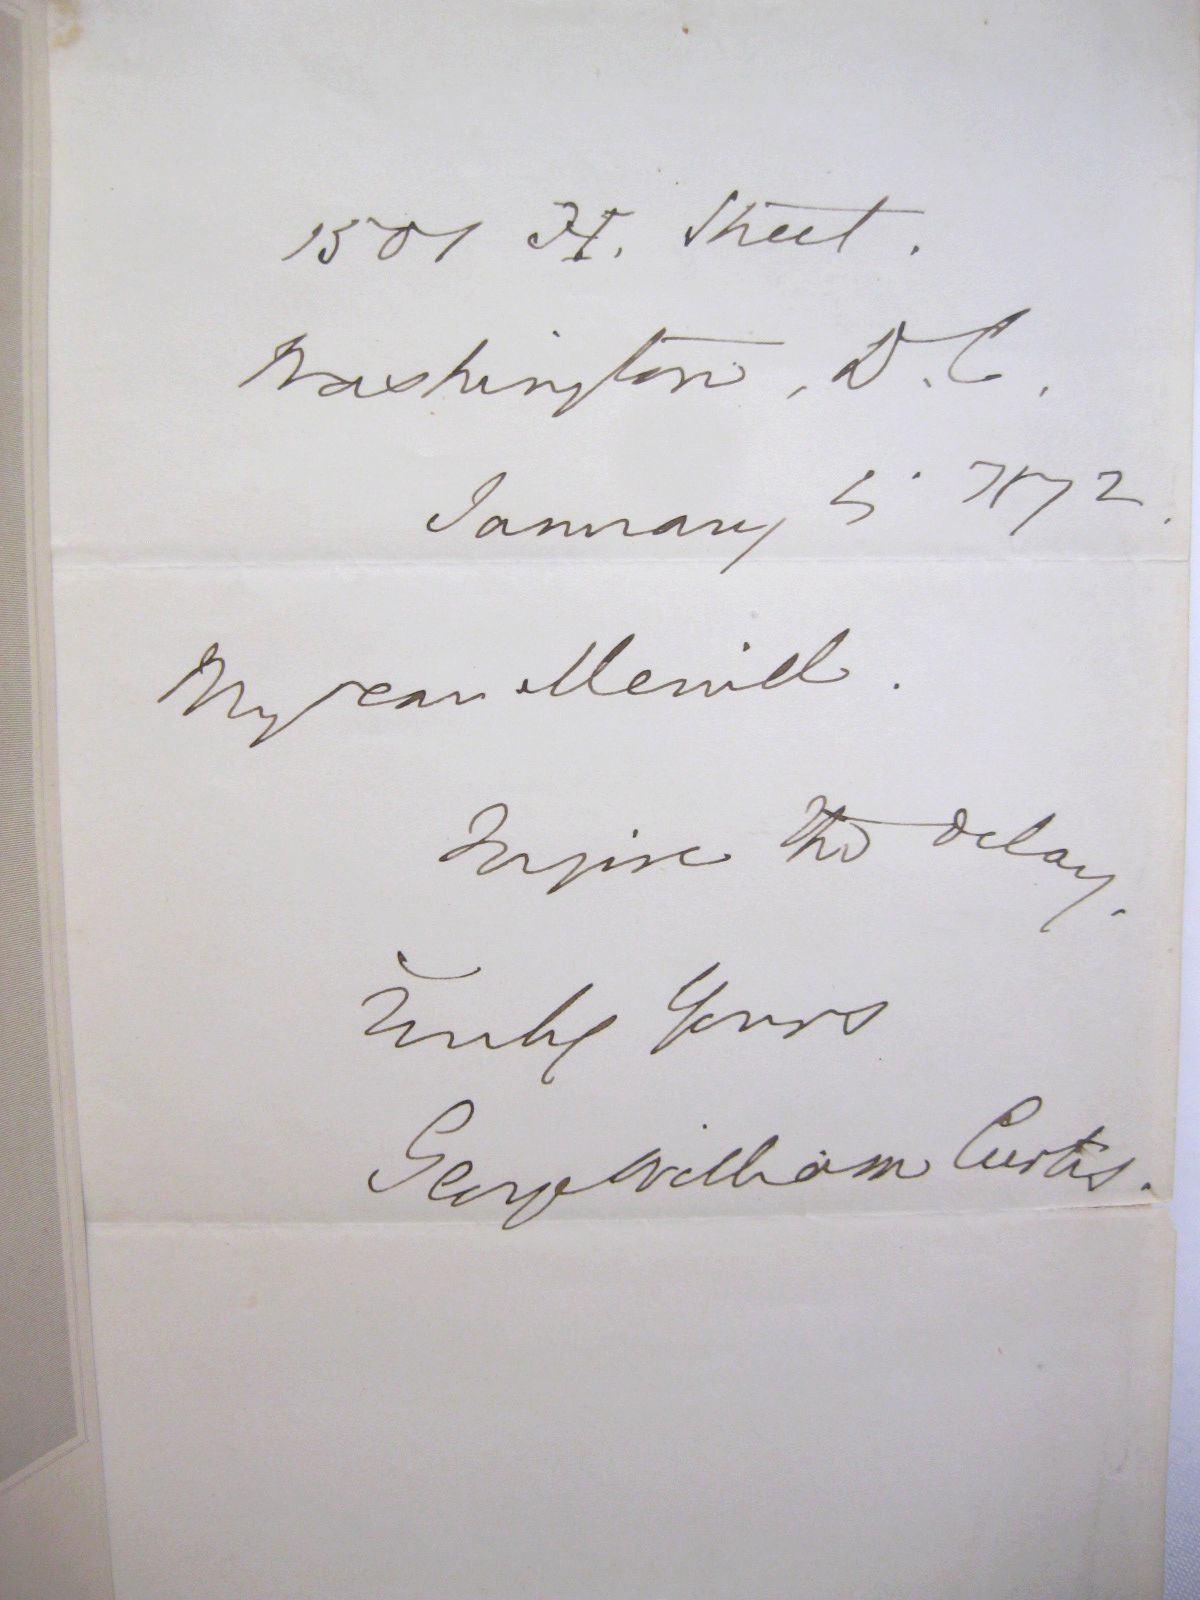 1501 H. Street.
Washington, D.C.
January 5. 1872.
My dear Merrill.
Forgive the delay.
Truly Yours
George William Curtis.